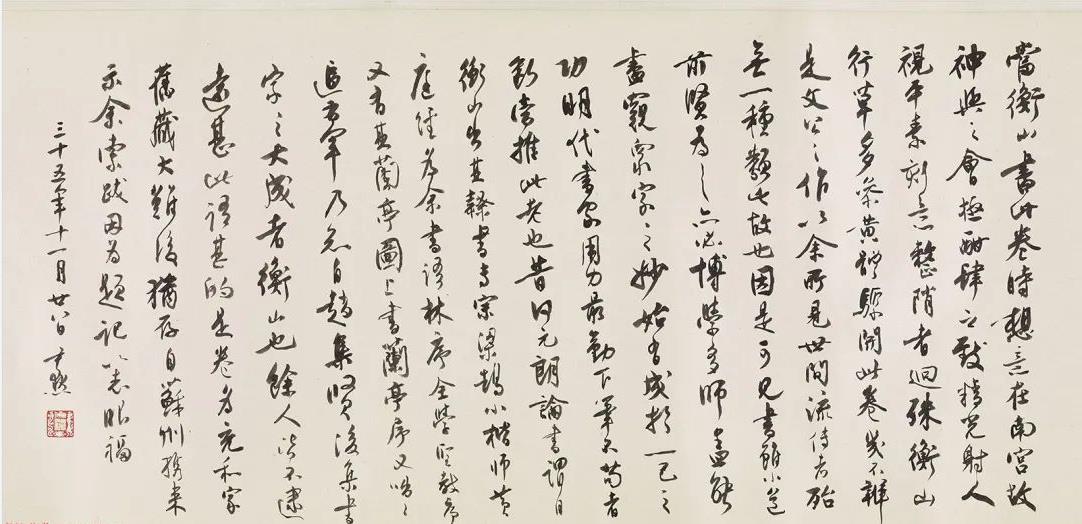 當衡山書此卷時想意在南宮故
神與之會極酣肆之致精光射人
視平素刻意整隋者迥殊衡山
行草多參黃體驟開此卷幾不辨
是文公之作以余所見世間流傳者殆
無一種類此故也因是可見書雖小道
前賢為之亦必博學多師蓋能
盡觀眾家之妙始有成於一己之
功明代書家用力最勤下筆不苟者
斷當推此老也昔何元朗論書謂曰
衡山出其隸書專宗梁鵠小楷師黃
庭經為余書語林序全學聖教序
又有其蘭亭圖上書蘭亭序又咄咄
逼右軍乃知自趙集賢後集書
家之大成者衡山也餘人皆不逮
遠甚此語甚的是卷為充和家
舊藏大難後猶存自蘇州攜來
示余索跋因為題記以志眼福
三十五年十一月廿八日 尹默